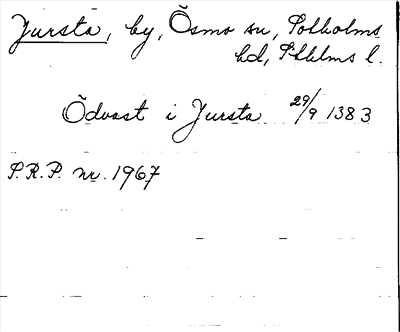 Jursta, by, Ösmo sn, Sotholms
hd, Sthlms l.
Ödvast i Jursta 29/9 1383
S.R.P. nr. 1967